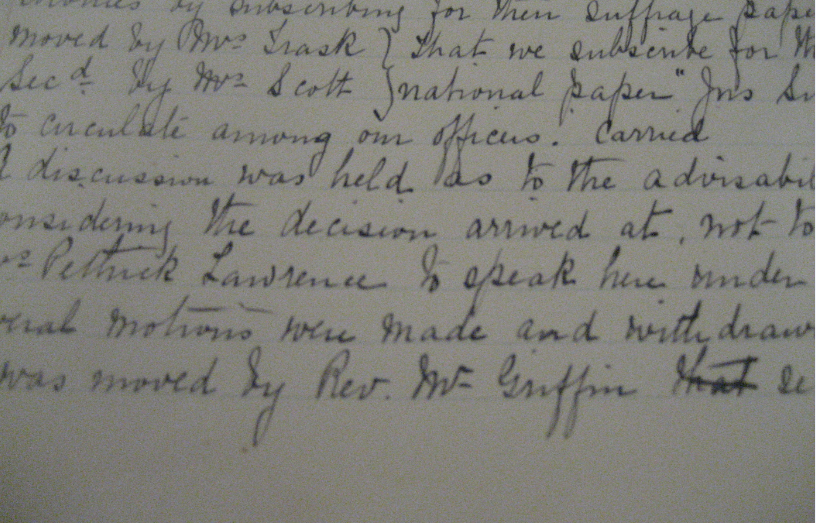 by subscribing for their suffrage pape
moved by Mrs Trask } that we subscribe for th
Secd by Mrs Scott } national paper " Jus Su
to circulate among our officers. Carried
A discussion was held as to the advisabil
onsidering the decision arrived at, not to
rs Pethick Lawrence to speak here under
veral motions were made and withdraw
was moved by Rev. Mr Griffin that se